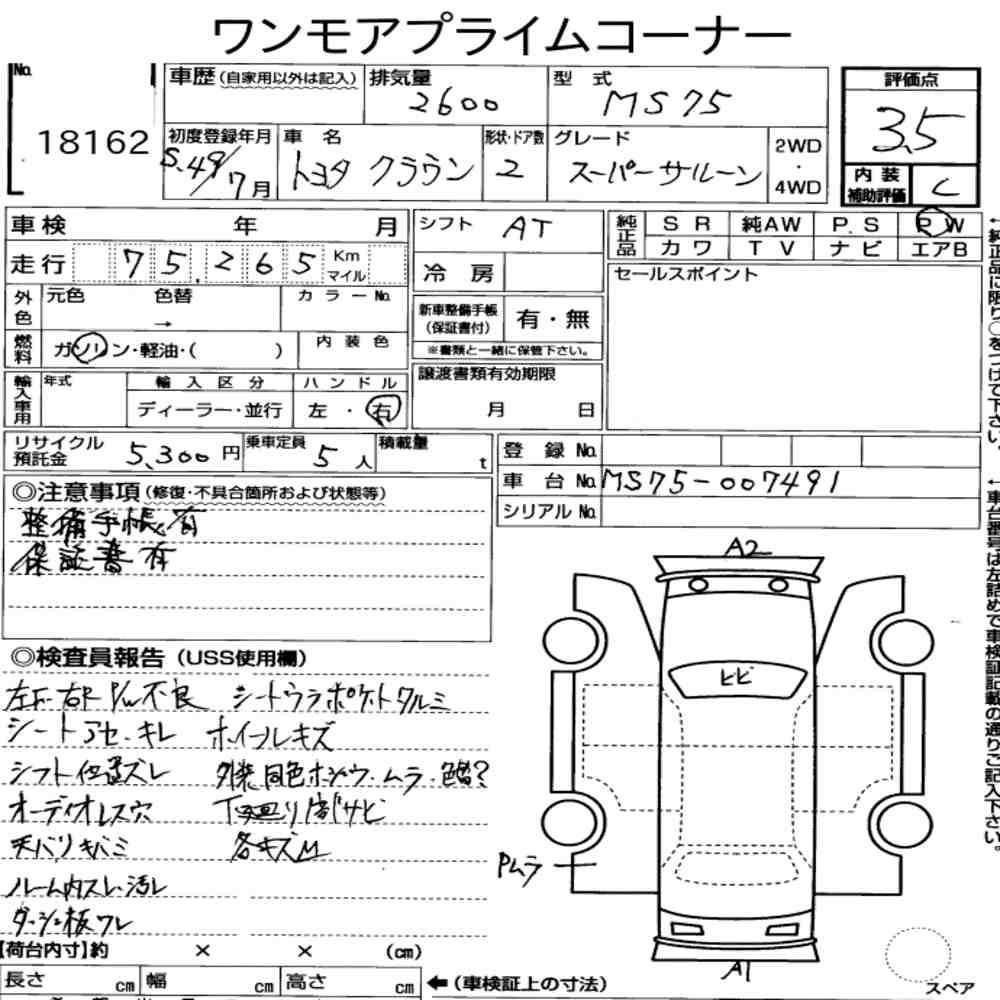 ワンモアプライムコーナー
No. 18162
車歴(自家用以外は記入) 排気量 2600 型式 MS75
初度登録年月 S.49/7月 車名 トヨタ クラウン 形状・ドア数 2 グレード スーパーサルーン 2WD・4WD
評価点 3.5
内装補助評価 C
車検 年 月
走行 75,265 Km マイル
外色 元色 色替 → カラーNo.
燃料 ガソリン・軽油・( ) 内装色
輸入車用 年式 輸入区分 ディーラー・並行 ハンドル 左・右
シフト AT
冷房
新車整備手帳(保証書付) 有・無
※書類と一緒に保管下さい。
譲渡書類有効期限 月 日
純正品 SR 純AW P.S P.W
カワ TV ナビ エアB
セールスポイント
←純正品に限り○をつけて下さい。
リサイクル預託金 5,300円 乗車定員 5人 積載量 t
登録No.
車台No. MS75-007491
シリアルNo.
←車台番号は左詰めで車検証記載の通りご記入下さい。
◎注意事項(修復・不具合箇所および状態等)
整備手帳有
保証書有
◎検査員報告(USS使用欄)
左F・右R P/W不良 シートウラポケットタルミ
シートアセ・キレ ホイールキズ
シフト位置ズレ 外装同色ホシュウ・ムラ・色替?
オーディオレス穴 下廻り部サビ
天バリキバミ 各キズM
ルーム内スレ・汚レ
ダッシュ板ワレ
A2
ヒビ
Pムラ
A1
スペア
【荷台内寸】約 × × (cm)
長さ cm 幅 cm 高さ cm ←(車検証上の寸法)